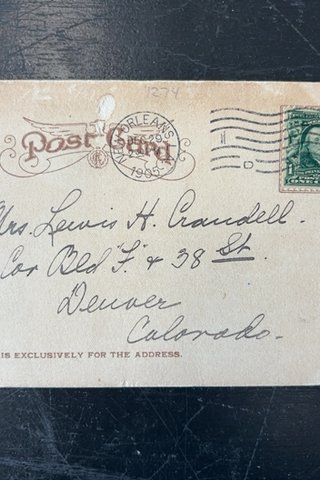 1274
Post Card
NEW ORLEANS
1905
Mrs. Lewis H. Crandell.
Cor Bld "F." & 38 St.
Denver
Colorado.
IS EXCLUSIVELY FOR THE ADDRESS.